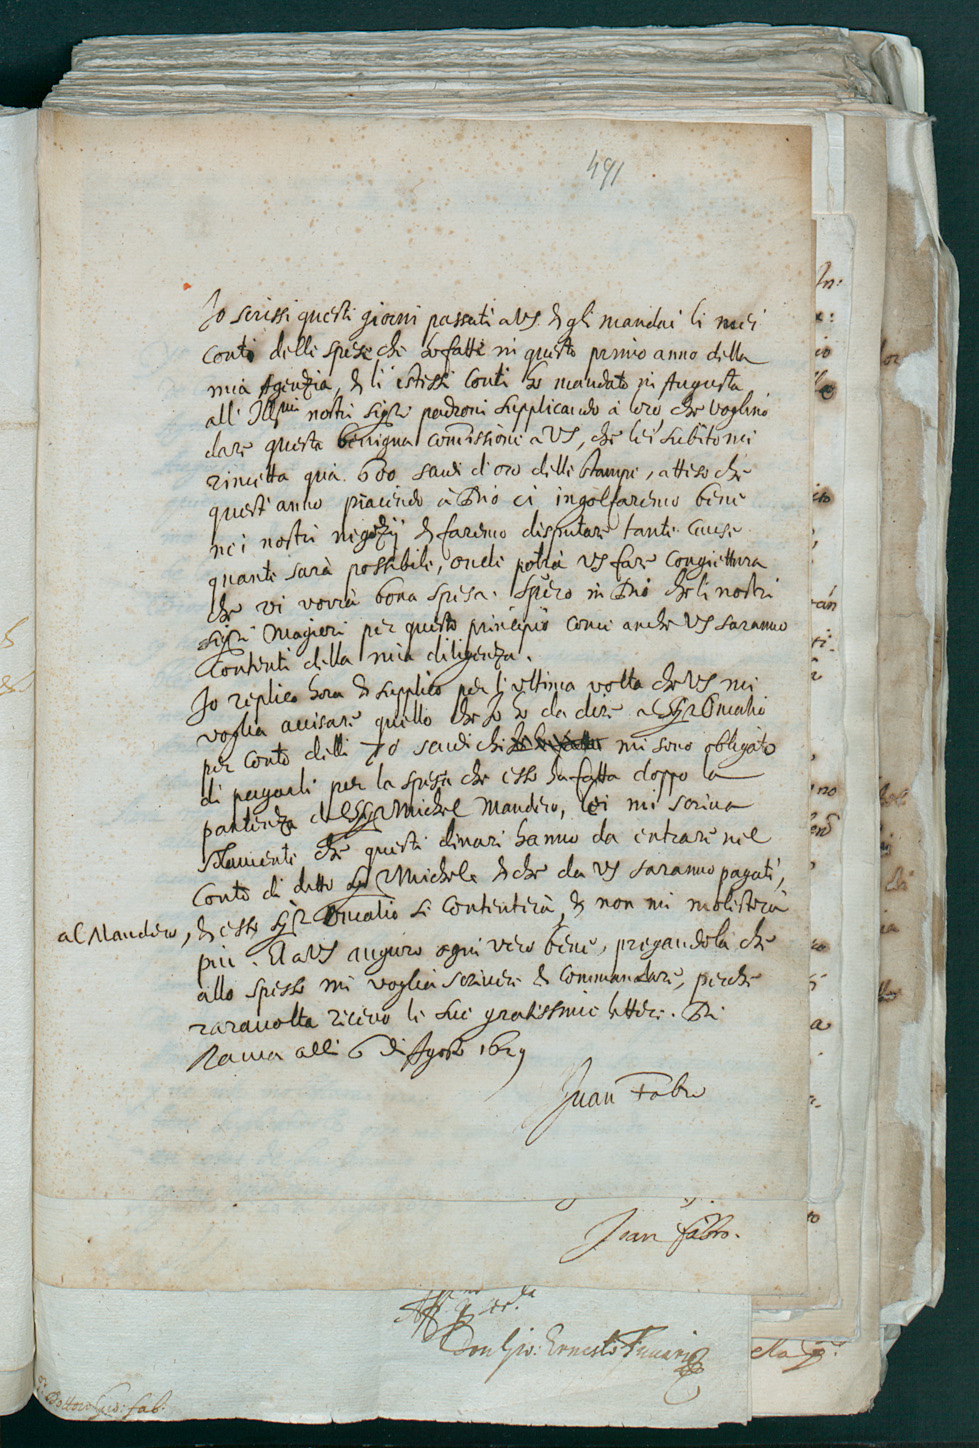 491
Jo scrissi questi giorni passati a VS. & gli mandai li miei
conti delle spese che ho fatte in questo primo anno della
mia Agenzia, & li istessi conti ho mandato in Augusta
all' Ill.mi nostri Sig.ri padroni supplicando à loro che voglino
dare questa benigna comissione a VS, che lei subito mi
rimetta quà 600 scudi d'oro delle stampe, atteso che
quest' anno piacendo à Dio ci ingolfaremo bene
nei nostri negozij & faremo disputare tante cause
quante sarà possibile, onde potrà VS fare congiettura
che vi vorrà bona spesa. Spero in Dio che li nostri
Sig.ri Magiori per questo principio come anche VS saranno
contenti della mia diligenza.
Jo replico hora & supplico per l'ultima volta che VS mi
voglia avisare quello che Jo ho da dire al Sig.r
per conto delli 70 scudi che mi sono obligato
di pagarli per la spesa che esso ha fatta doppo la
partenza del Sig.r Michel Mandero, lei mi scriva
solamente che questi dinari hanno da entrare nel
conto di detto Sig.r Michele & che da VS saranno pagati,
al Mandero, & esso Sig.r si contenterà, & non mi molesterà
più. Et a VS auguro ogni vero bene, pregandola che
allo spesso mi voglia scrivere & commandare, perche
rara volta ricevo le sue gratissime lettere. Di
Roma alli 6 di Agosto 1629
Juan Fabro
Juan fabro.
Don Gio: Ernesto
ella